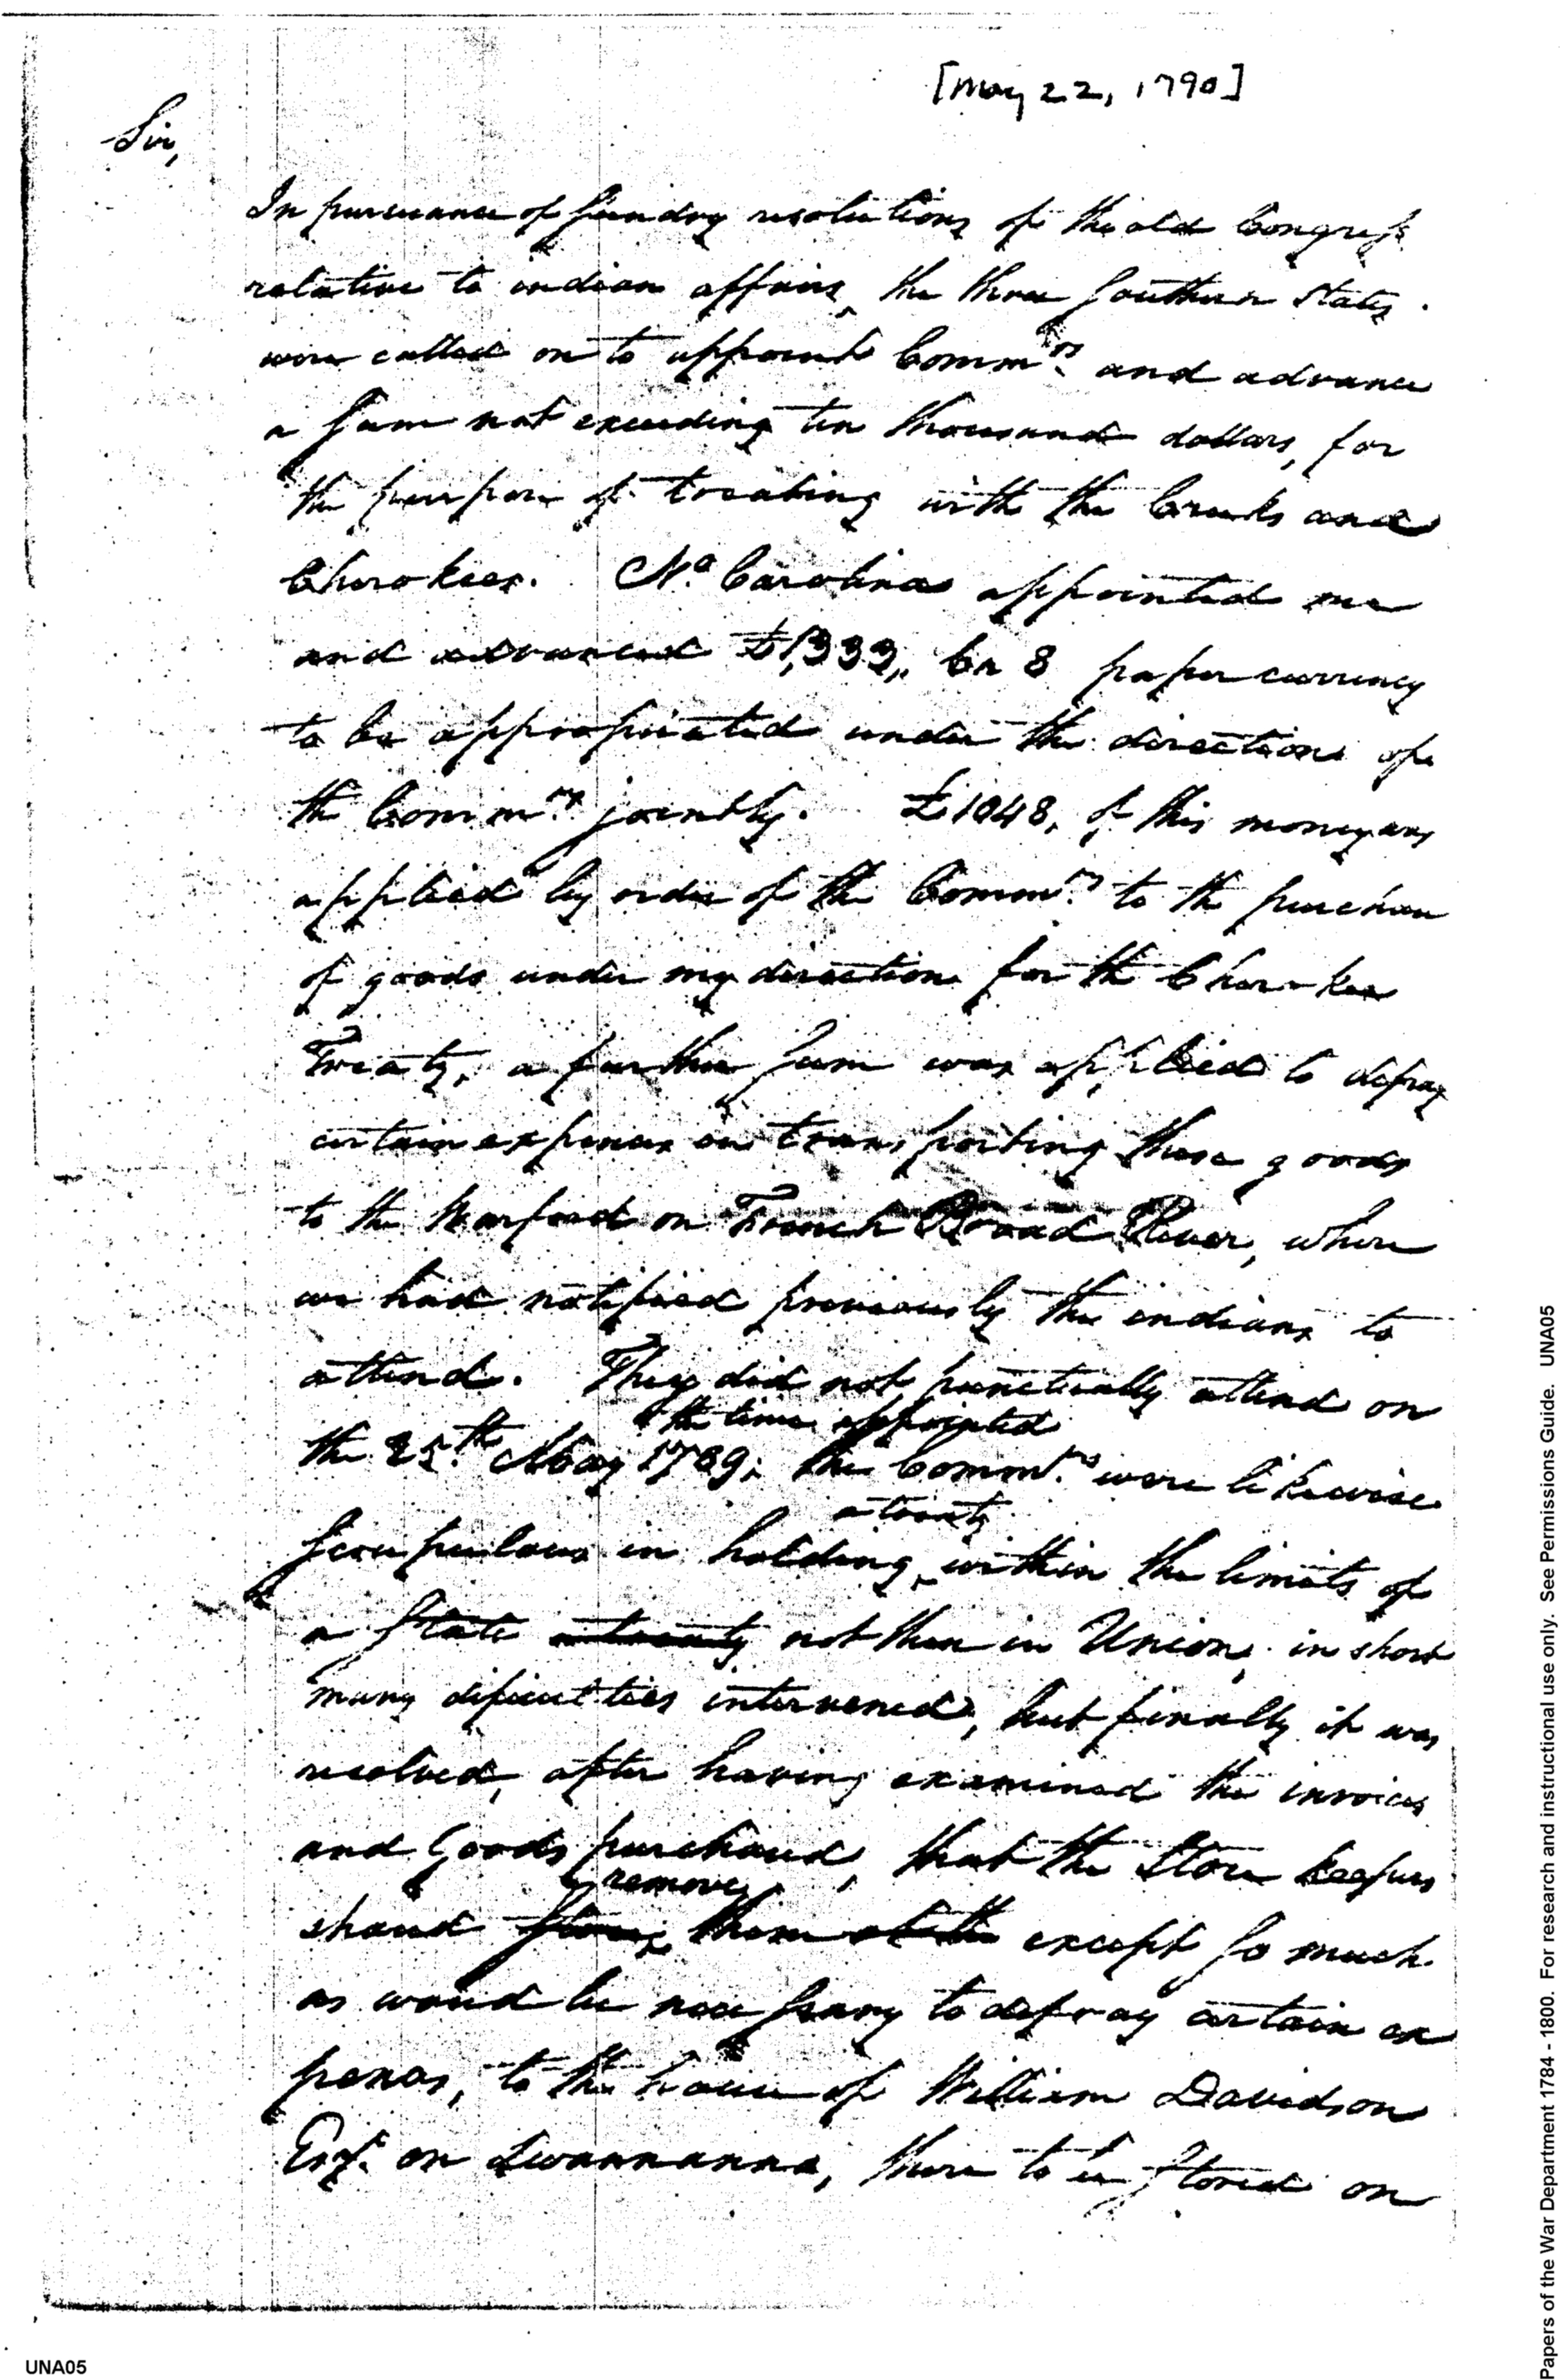 [May 22, 1790]
Sir,
In pursuance of sundry resolutions of the old Congress
relative to indian affairs, the three Southern States
were called on to appoint Comm.rs and advance
a sum not exceeding ten thousand dollars, for
the purpose of treating with the Creeks and
Cherokees. No. Carolina appointed me
and advanced £1,333,, 6 „ 8 paper currency
to be appropriated under the directions of
the Comm.rs jointly. £1048, of this money was
applied by order of the Comm.rs to the purchase
of goods under my direction for the Cherokee
Treaty, a further sum was applied to defray
certain expences in transporting these goods
to the Warford on French Broad River, where
we had notified previously the indians to
attend. They did not punctually attend on
the time appointed
the 25.th May 1789; the Comm.rs were likewise
a treaty
scrupulous in holding within the limits of
a State a treaty not then in Union, in short
many dificulties intervened, but finally it was
resolved, after having examined the invoices
and Goods purchased, that the Store keepers
remove
shoud store them at the except so much
as woud be necessary to defray certain ex
pences, to the house of William Davidson
Esq.r on Swannanna, there to be stored on
UNA05
Papers of the War Department 1784 - 1800. For research and instructional use only. See Permissions Guide. UNA05